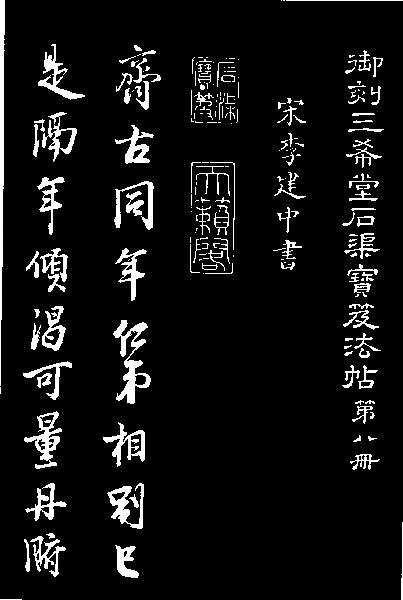 御刻三希堂石渠寶笈法帖第八冊
宋李建中書
石渠寶笈
天籟閣
齊古同年仁弟相別已
是隔年傾渴可量丹腑